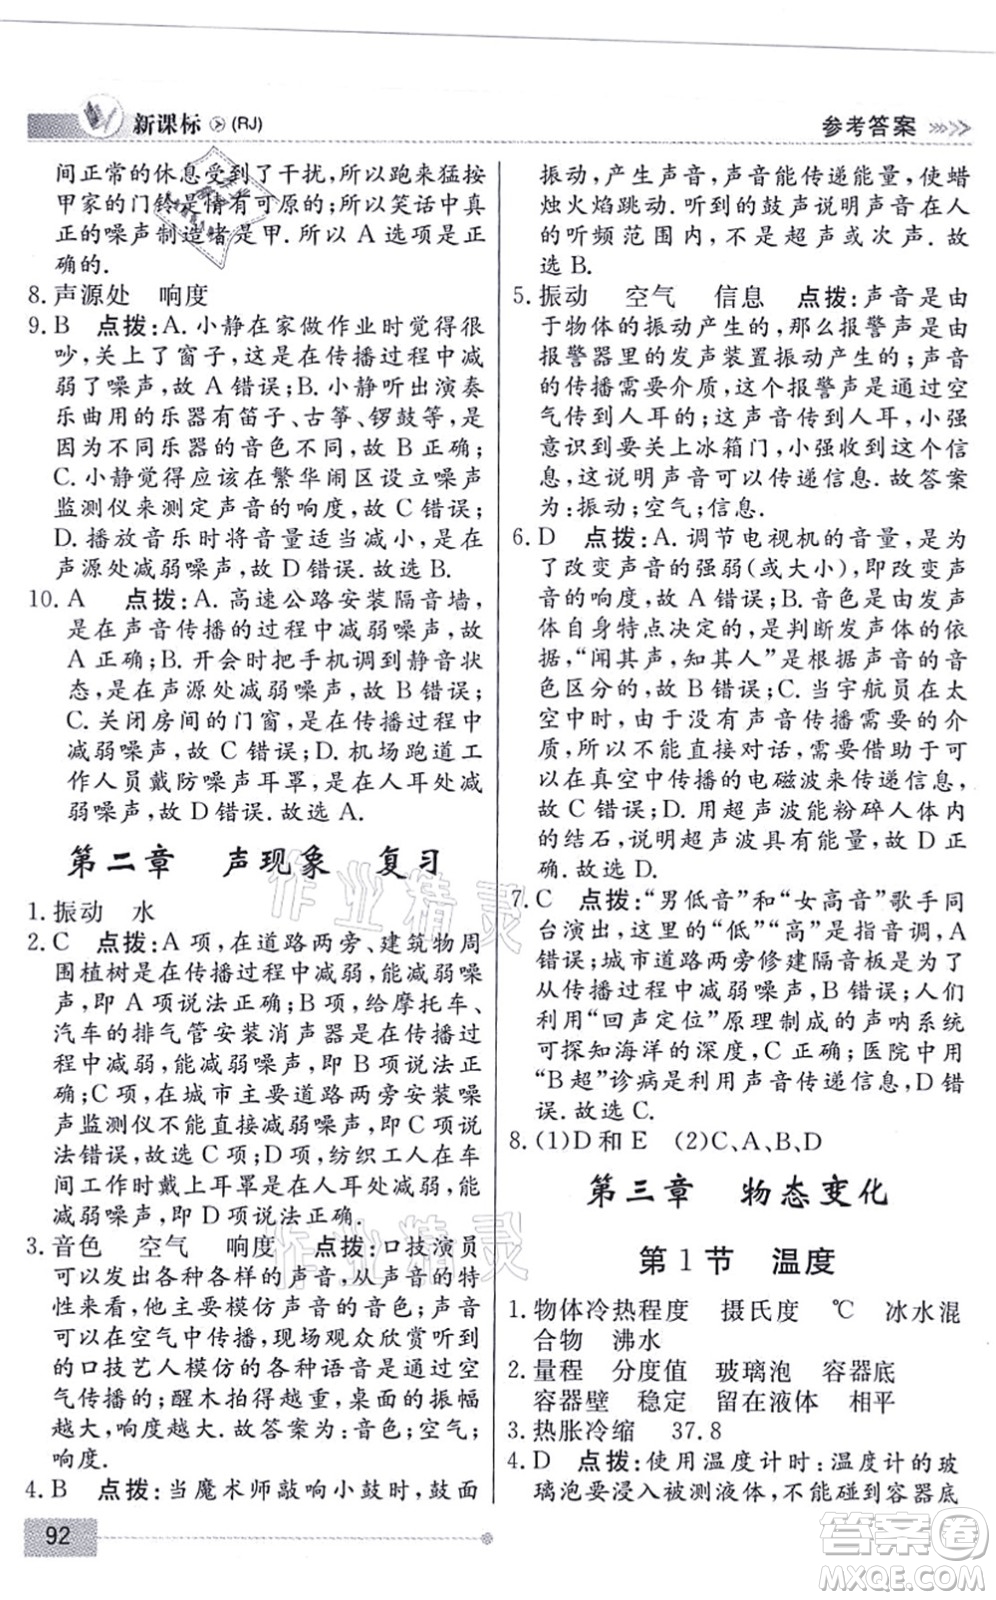 新课标 (RJ)
参考答案
间正常的休息受到了干扰,所以跑来猛按
甲家的门铃是情有可原的;所以笑话中真
正的噪声制造者是甲.所以 A 选项是正
确的.
8. 声源处 响度
9. B 点拨:A. 小静在家做作业时觉得很
吵,关上了窗子,这是在传播过程中减
弱了噪声,故 A 错误;B. 小静听出演奏
乐曲用的乐器有笛子、古筝、锣鼓等,是
因为不同乐器的音色不同,故 B 正确;
C. 小静觉得应该在繁华闹区设立噪声
监测仪来测定声音的响度,故 C 错误;
D. 播放音乐时将音量适当减小,是在
声源处减弱噪声,故 D 错误.故选 B.
10. A 点拨:A. 高速公路安装隔音墙,
是在声音传播的过程中减弱噪声,故
A 正确;B. 开会时把手机调到静音状
态,是在声源处减弱噪声,故 B 错误;
C. 关闭房间的门窗,是在传播过程中
减弱噪声,故 C 错误;D. 机场跑道工
作人员戴防噪声耳罩,是在人耳处减弱
噪声,故 D 错误.故选 A.
第二章 声现象 复习
1. 振动 水
2. C 点拨:A 项,在道路两旁、建筑物周
围植树是在传播过程中减弱,能减弱噪
声,即 A 项说法正确;B 项,给摩托车、
汽车的排气管安装消声器是在传播过
程中减弱,能减弱噪声,即 B 项说法正
确;C 项,在城市主要道路两旁安装噪
声监测仪不能直接减弱噪声,即 C 项说
法错误,故选 C 项;D 项,纺织工人在车
间工作时戴上耳罩是在人耳处减弱,能
减弱噪声,即 D 项说法正确.
3. 音色 空气 响度 点拨:口技演员
可以发出各种各样的声音,从声音的特
性来看,他主要模仿声音的音色;声音
可以在空气中传播,现场观众欣赏听到
的口技艺人模仿的各种语音是通过空
气传播的;醒木拍得越重,木的振幅
越大,响度越大.故答案为:音色;空气;
响度.
4. B 点拨:当魔术师敲响小鼓时,鼓面
振动,产生声音,声音能传递能量,使蜡
烛火焰跳动.听到的鼓声说明声音在人
的听频范围内,不是超声或次声.故
选 B.
5. 振动 空气 信息 点拨:声音是由
于物体的振动产生的,那么报警声是由
报警器里的发声装置振动产生的;声音
的传播需要介质,这个报警声是通过空
气传到人耳的;这声音传到人耳,小强
意识到要关上冰箱门,小强获得这个信
息,这说明声音可以传递信息.故答案
为:振动;空气;信息.
6. D 点拨:A. 调节电视机的音量,是为
了改变声音的强弱(或大小),即改变声
音的响度,故 A 错误;B. 音色是由发声
体自身特点决定的,是判断发声体的依
据,“闻其声,知其人”是根据声音的音
色区分的,故 B 错误;C. 当宇航员在太
空中时,由于没有声音传播需要的介
质,所以不能直接对话,需要借助能够
在真空中传播的电磁波来传递信息,
故 C 错误;D. 用超声波能粉碎人体内
的结石,说明超声波具有能量,故 D 正
确.故选 D.
7. C 点拨:“男低音”和“女高音”歌手同
台演出,这里的“低”“高”是指音调,A
错误;城市道路两旁修建隔音板是为了
从传播过程中减弱噪声,B 错误;人们
利用“回声定位”原理制成的声呐系统
可探知海洋的深度,C 正确;医院中用
“B 超”诊病是利用声音传递信息,D 错
误.故选 C.
8. (1)D 和 E (2)C、A、B、D
第三章 物态变化
第 1 节 温度
1. 物体冷热程度 摄氏度 ℃ 冰水混
合物 沸水
2. 量程 分度值 玻璃泡 容器底
容器壁 稳定 留在液体 相平
3. 热胀冷缩 37.8
4. D 点拨:使用温度计时:温度计的玻
璃泡要浸入被测液体,不能碰到容器底
92
作业精灵
作业精灵
答案圈
MXQE.COM